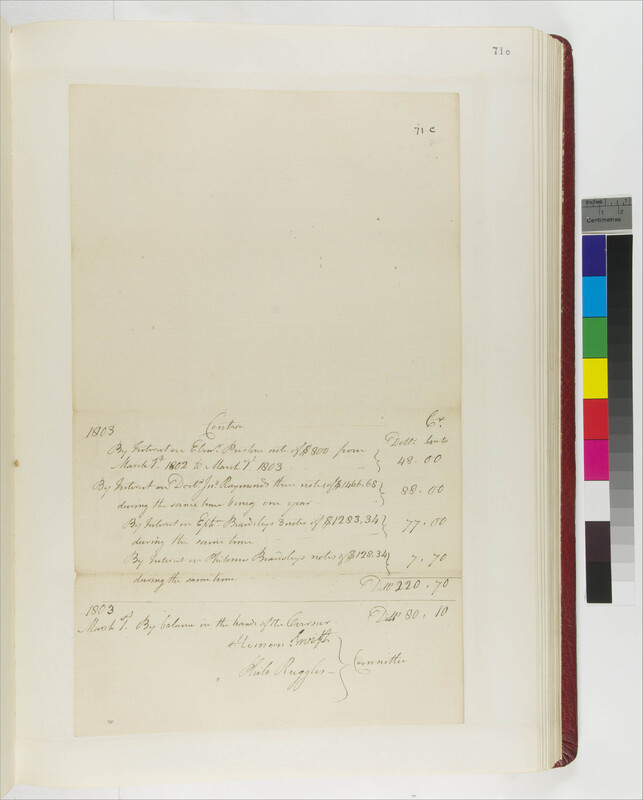 71c
71 C
1803 Contra Cr.
Dolls. Cents
By Interest on Eben. note of $800 from
March 1st. 1802 to March 1st. 1803 48.00
By Interest on Doct. Jas. Raymonds three notes of $1466.68
during the same time being one year 88.00
By Interest on Eph. Beardsleys 3 notes of $1283.34
during the same time 77.00
By Interest on Philomon Beardsleys notes of $128.34
during the same time 7.70
Dolls 220.70
1803
March 1st. By balance in the hands of the Dolls 80.10
Ruggles
Committee
Inches
1 2
Centimetres